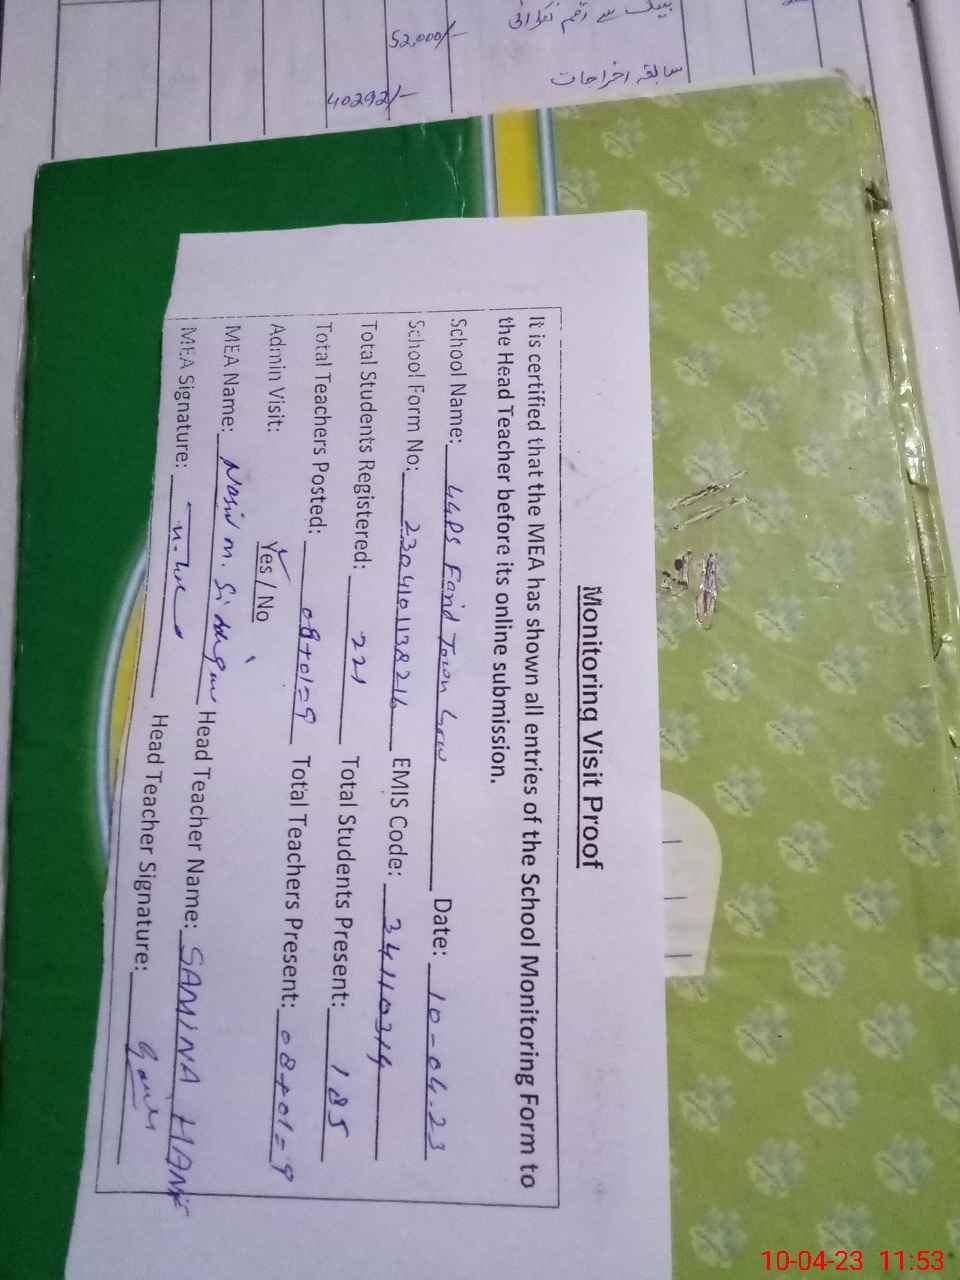 بینک سے رقم نکلوائی
52,000/-
سابقہ اخراجات
40292/-
Monitoring Visit Proof
It is certified that the MEA has shown all entries of the School Monitoring Form to
the Head Teacher before its online submission.
School Name: GGPS Farid Town Date: 10-04-23
School Form No: EMIS Code: 34110314
Total Students Registered: 221 Total Students Present: 185
Total Teachers Posted: 08+01=9 Total Teachers Present: 08+01=9
Admin Visit: Yes / No
MEA Name: Nasir M. Head Teacher Name: SAMINA HANIF
MEA Signature: Head Teacher Signature:
10-04-23 11:53